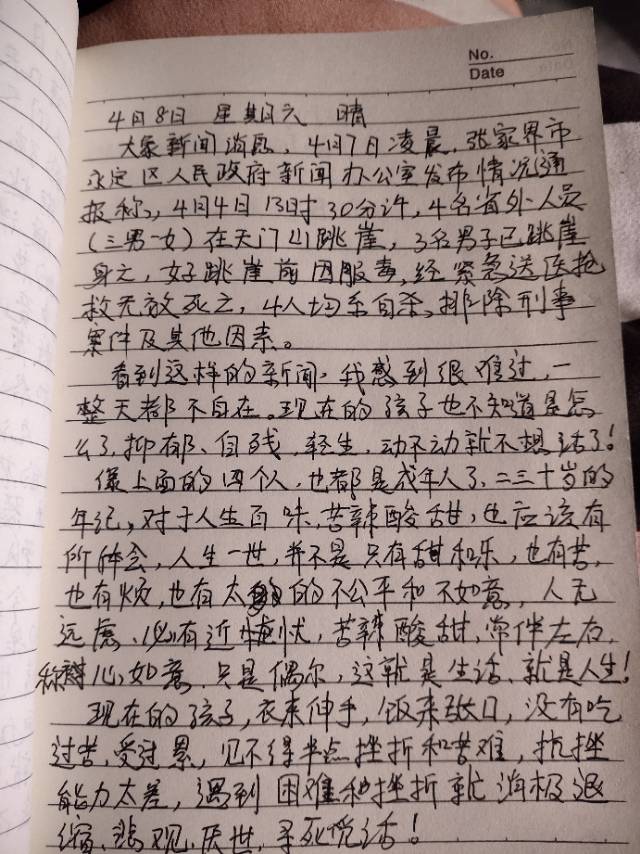 No.
Date
4月8日 星期六 晴
大象新闻消息，4月7日凌晨，张家界市
永定区人民政府新闻办公室发布情况通
报称，4月4日13时30分许，4名省外人员
（三男一女）在天门山跳崖，3名男子已跳崖
身亡，女子跳崖前因服毒，经紧急送医抢
救无效死亡，4人均系自杀，排除刑事
案件及其他因素。
看到这样的新闻，我感到很难过，一
整天都不自在。现在的孩子也不知道是怎
么了，抑郁、自残、轻生，动不动就不想活了！
像上面的四个人，也都是成年人了，二三十岁的
年纪，对于人生百味，苦辣酸甜，也应该有
所体会，人生一世，并不是只有甜和乐，也有苦，
也有烦，也有太多的不公平和不如意，人无
远虑，必有近忧，苦辣酸甜，常伴左右，
称心如意，只是偶尔，这就是生活，就是人生！
现在的孩子，衣来伸手，饭来张口，没有吃
过苦，受过累，见不得半点挫折和苦难，抗挫
能力太差，遇到困难和挫折就消极退
缩，悲观，厌世，寻死觅活！